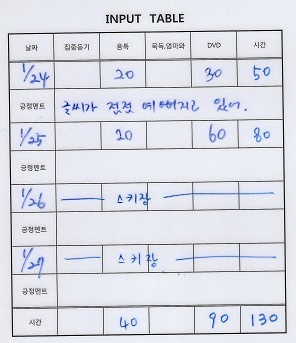 INPUT TABLE
날짜 집중듣기 음독 묵독,엄마와 DVD 시간
1/24 20 30 50
긍정멘트 글씨가 점점 예뻐지고 있어.
1/25 20 60 80
긍정멘트
1/26 스키장
긍정멘트
1/27 스키장
긍정멘트
시간 40 90 130